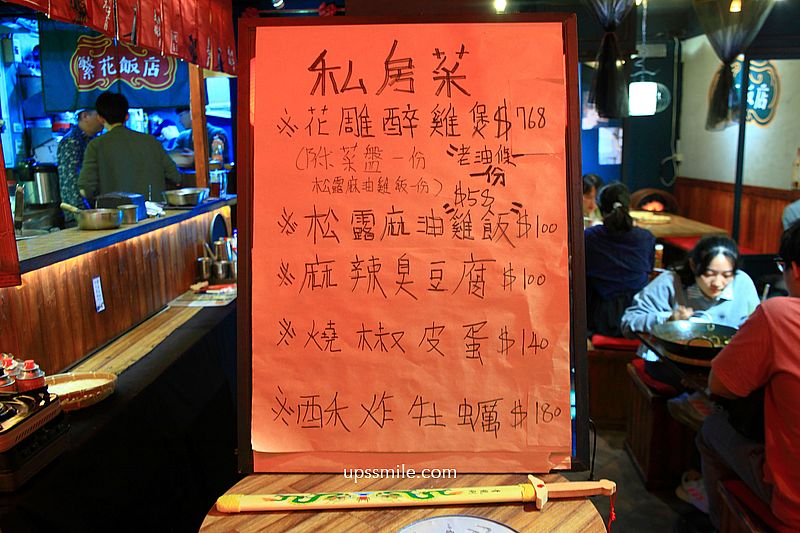 繁花飯店
店
私房菜
※花雕醉雞煲$768
(附菜盤一份
松露麻油雞飯一份)
老油條一份
$58
※松露麻油雞飯$100
※麻辣臭豆腐$100
※燒椒皮蛋$140
※酥炸牡蠣$180
upssmile.com